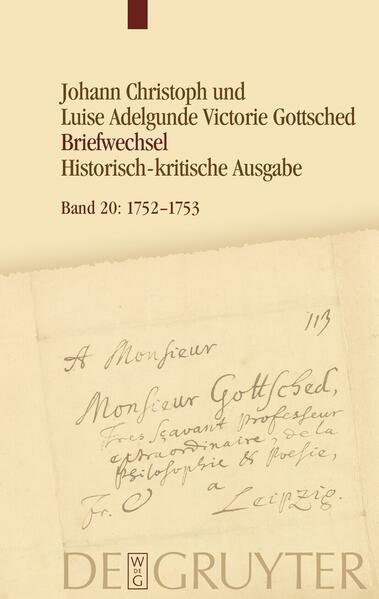 Johann Christoph und
Luise Adelgunde Victorie Gottsched
Briefwechsel
Historisch-kritische Ausgabe
Band 20: 1752–1753
113
A Monsieur
Monsieur Gottsched,
Tres Sçavant Professeur
extraordinaire, de la
Philosophie & Poesie,
Fr. a
Leipzig.
DE GRUYTER
W
DE
G